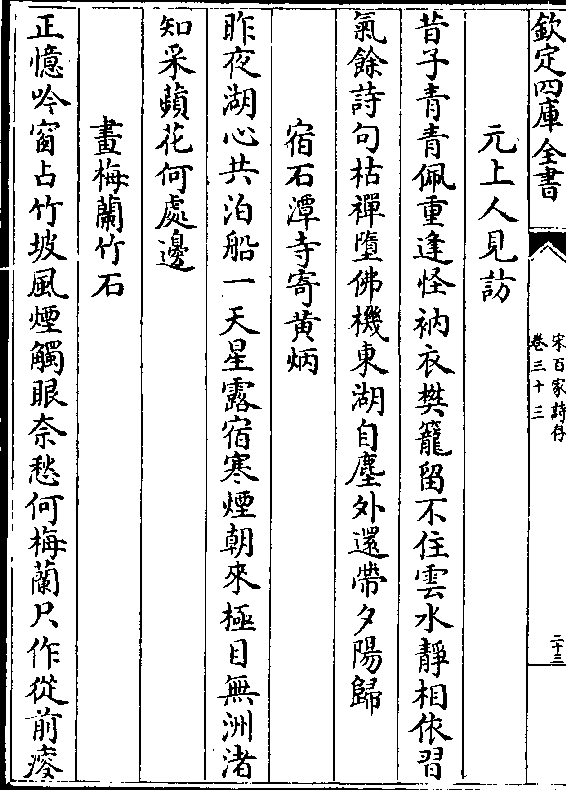 欽定四庫全書
宋百家詩存
卷三十三
二十三
元上人見訪
昔子青青佩重逢怪衲衣樊籠留不住雲水靜相依習
氣餘詩句枯禪墮佛機東湖自塵外還帶夕陽歸
宿石潭寺寄黄炳
昨夜湖心共泊船一天星露宿寒煙朝來極目無洲渚
知采蘋花何處邊
畫梅蘭竹石
正憶吟窗占竹坡風煙觸眼奈愁何梅蘭只作從前瘦